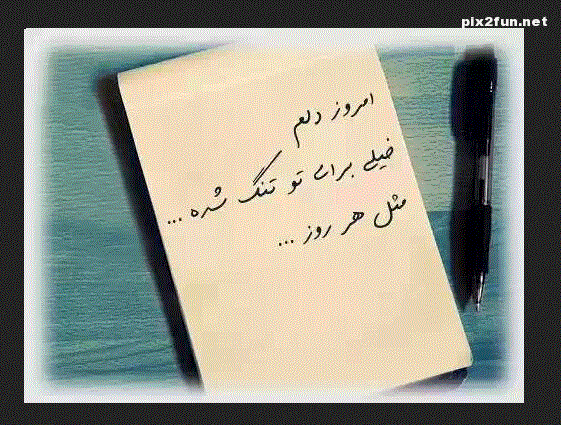 pix2fun.net
امروز دلم
خیلی برای تو تنگ شده ...
مثل هر روز ...